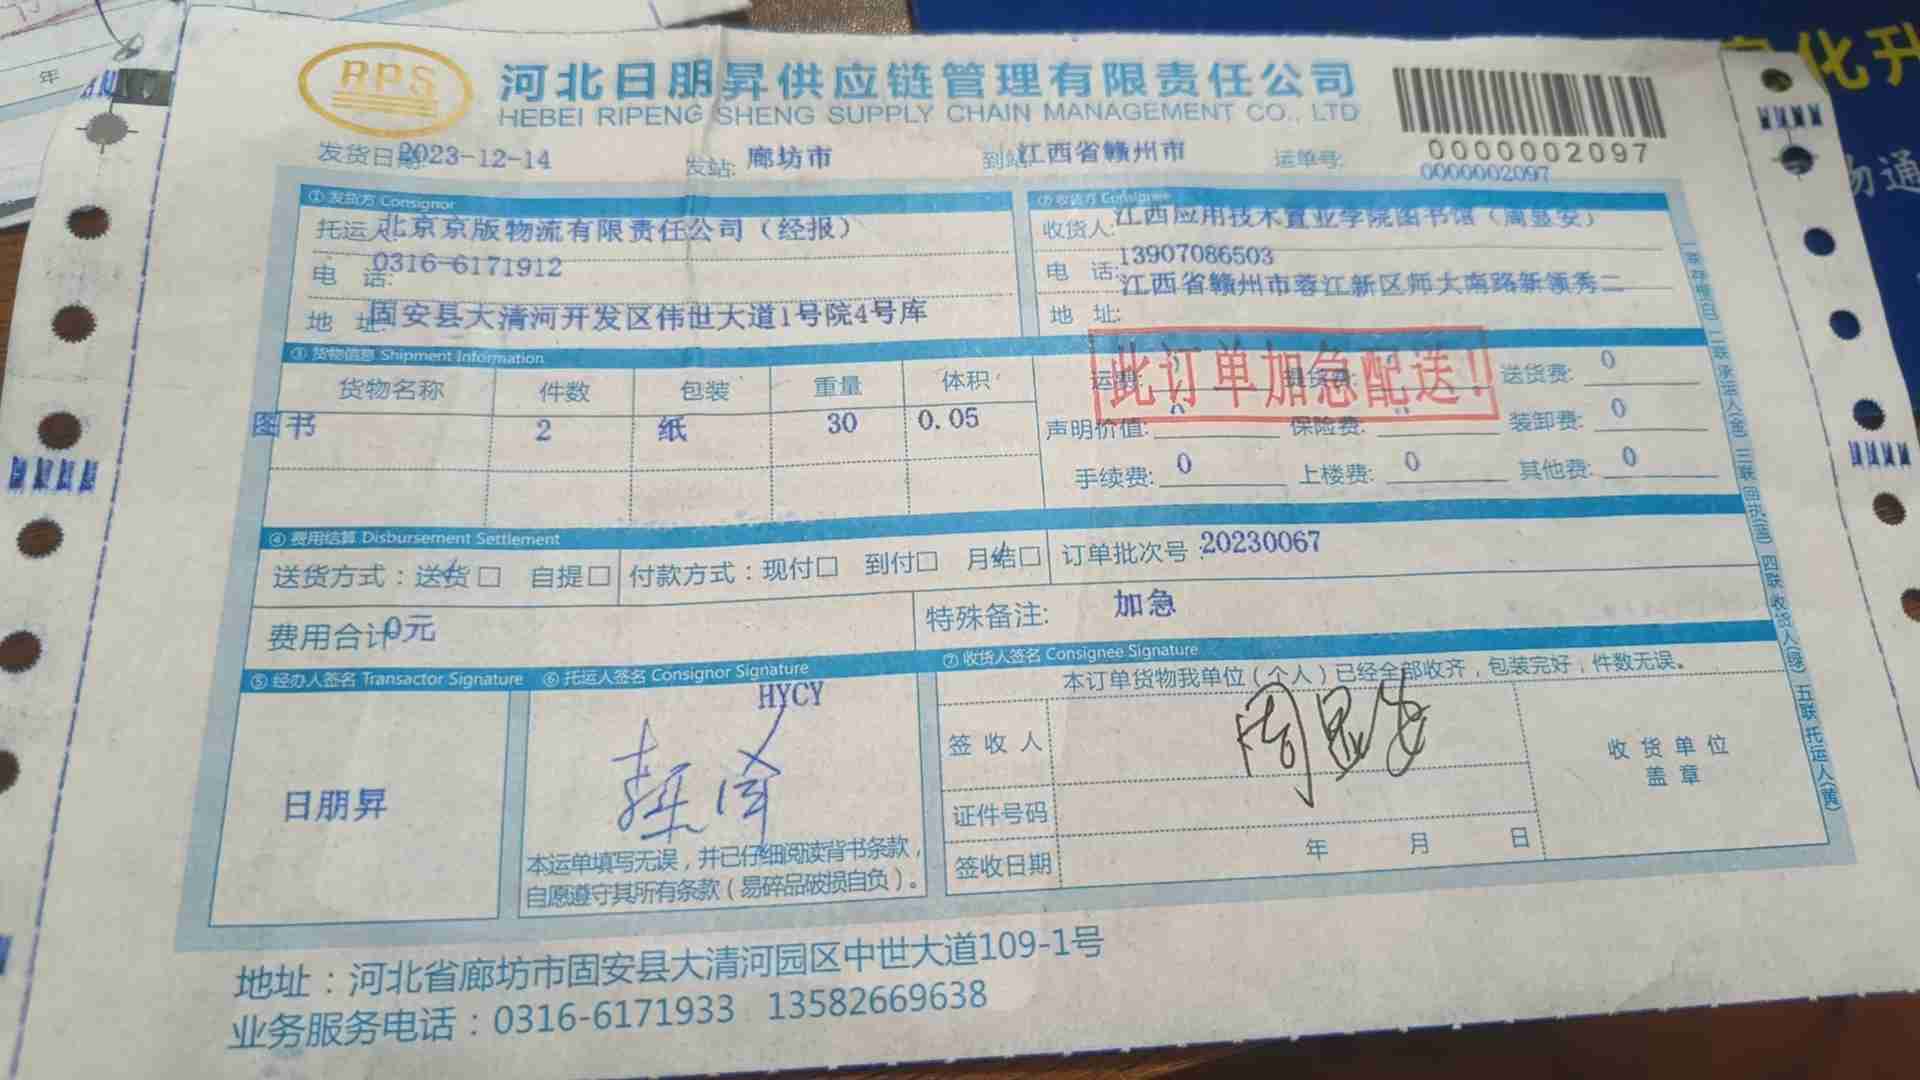 RPS
河北日朋昇供应链管理有限责任公司
HEBEI RIPENG SHENG SUPPLY CHAIN MANAGEMENT CO., LTD
0000002097
发货日期 2023-12-14 发站: 廊坊市 到站 江西省赣州市 运单号: 0000002097
① 发货方 Consignor
托运人 北京京版物流有限责任公司（经报）
电 话: 0316-6171912
地 址 固安县大清河开发区伟世大道1号院4号库
② 收货方 Consignee
收货人: 江西应用技术置业学院图书馆（周显安）
电 话: 13907086503
地 址: 江西省赣州市蓉江新区师大南路新领秀二
③ 货物信息 Shipment Information
货物名称 件数 包装 重量 体积
图书 2 纸 30 0.05
此订单加急配送!
运费: 提货费: 送货费: 0
声明价值: 0 保险费: 装卸费: 0
手续费: 0 上楼费: 0 其他费: 0
④ 费用结算 Disbursement Settlement
送货方式：送货□ 自提□ 付款方式：现付□ 到付□ 月结□ 订单批次号: 20230067
费用合计 0元 特殊备注: 加急
⑤ 经办人签名 Transactor Signature ⑥ 托运人签名 Consignor Signature ⑦ 收货人签名 Consignee Signature
日朋昇
HYCY
本运单填写无误，并已仔细阅读背书条款，
自愿遵守其所有条款（易碎品破损自负）。
本订单货物我单位（个人）已经全部收齐，包装完好，件数无误。
签 收 人 周显安
证件号码
签收日期 年 月 日
收 货 单 位
盖 章
地址：河北省廊坊市固安县大清河园区中世大道109-1号
业务服务电话：0316-6171933 13582669638
化升
物通
年